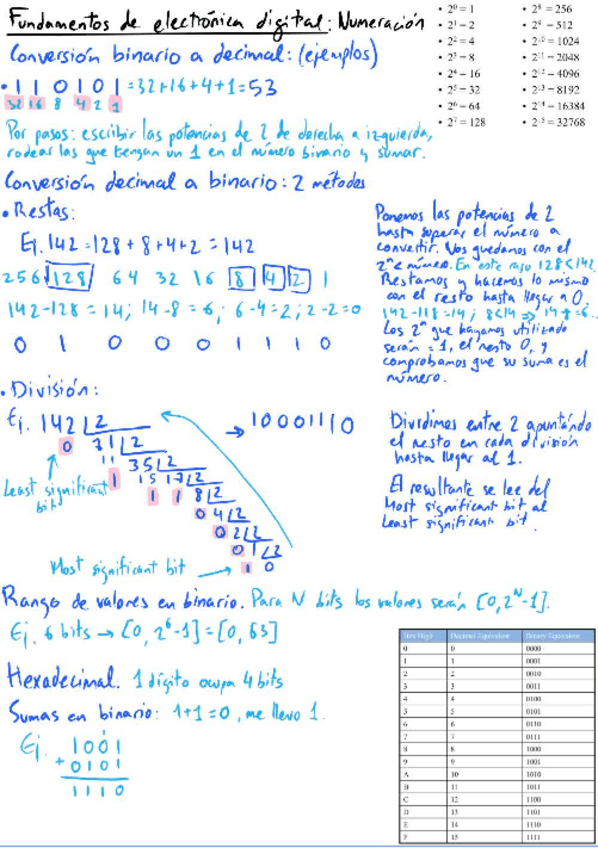 Fundamentos de electrónica digital: Numeración
• 2⁰ = 1
• 2¹ = 2
• 2² = 4
• 2³ = 8
• 2⁴ = 16
• 2⁵ = 32
• 2⁶ = 64
• 2⁷ = 128
• 2⁸ = 256
• 2⁹ = 512
• 2¹⁰ = 1024
• 2¹¹ = 2048
• 2¹² = 4096
• 2¹³ = 8192
• 2¹⁴ = 16384
• 2¹⁵ = 32768
Conversión binario a decimal: (ejemplos)
• 1 1 0 1 0 1 = 32+16+4+1 = 53
32 16 8 4 2 1
Por pasos: escribir las potencias de 2 de derecha a izquierda,
rodear las que tengan un 1 en el número binario y sumar.
Conversión decimal a binario: 2 métodos
• Restas:
Ej. 142 = 128 + 8 + 4 + 2 = 142
256 128 64 32 16 8 4 2 1
142-128 = 14; 14-8 = 6; 6-4 = 2; 2-2 = 0
0 1 0 0 0 1 1 1 0
Ponemos las potencias de 2
hasta superar el número a
convertir. Nos quedamos con el
2ⁿ < número. En este caso 128 < 142.
Restamos y hacemos lo mismo
con el resto hasta llegar a 0.
142-118 = 14; 8<14 => 14-8 = 6...
Los 2ⁿ que hayamos utilizado
serán = 1, el resto 0, y
comprobamos que su suma es el
número.
• División:
Ej. 142 2 → 10001110
0 71 2
11 35 2
1 15 17 2
1 1 8 2
0 4 2
0 2 2
0 1 2
1 0
Least significant
bit
Most significant bit
Dividimos entre 2 apuntándo
el resto en cada división
hasta llegar al 1.
El resultante se lee del
Most significant bit al
Least significant bit.
Rango de valores en binario. Para N bits los valores serán [0, 2ᴺ-1].
Ej. 6 bits → [0, 2⁶-1] = [0, 63]
Hexadecimal. 1 dígito ocupa 4 bits
Sumas en binario: 1+1=0, me llevo 1.
Ej. 1
1001
+ 0101
1110
Hex Digit Decimal Equivalent Binary Equivalent
0 0 0000
1 1 0001
2 2 0010
3 3 0011
4 4 0100
5 5 0101
6 6 0110
7 7 0111
8 8 1000
9 9 1001
A 10 1010
B 11 1011
C 12 1100
D 13 1101
E 14 1110
F 15 1111